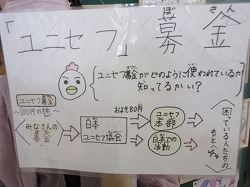 ぼ きん
「ユニセフ」募金
ユニセフ募金がどのように使われているか
知ってるかい？
ユニセフ募金
〜100円の旅〜
みなさんの
募金
日本
ユニセフ協会
およそ80円
ユニセフ
本部
日本での
活動
困っている人たちの
もとへ